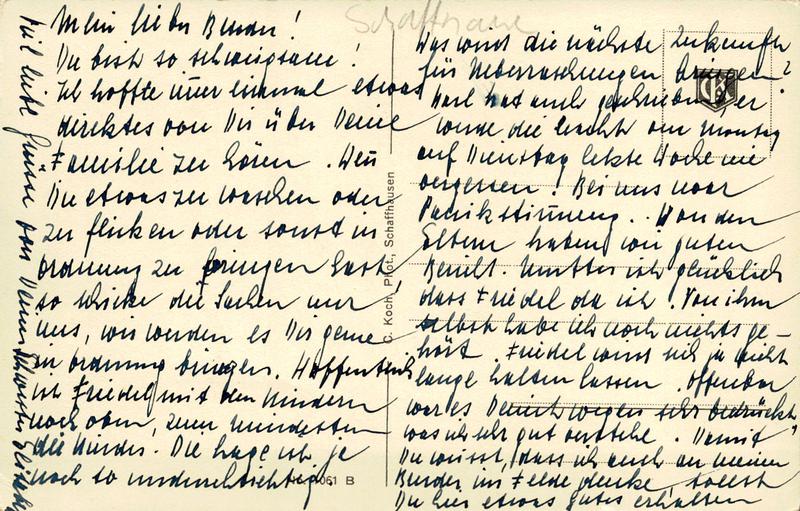 Mein lieber Bruder!
Du bist so schweigsam!
Ich hoffte immer einmal etwas
direktes von Dir über Deine
Familie zu hören. Wenn
Du etwas zu waschen oder
zu flicken oder sonst in
Ordnung zu bringen hast
so schicke die Sachen nur
uns, wir werden es Dir gerne
in Ordnung bringen. Hoffentlich
ist Friedel mit den Kindern
noch oben, zum mindesten
die Kinder. Die Lage ist ja
noch so undurchsichtig
Was wird die nächste Zukunft
für Ueberraschungen bringen?
Karl hat auch geschrieben, er
werde die Nacht von Montag
auf Dienstag letzte Woche nie
vergessen! Bei uns war
Panikstimmung. Von den
Eltern haben wir guten
Bericht. Mutter ist glücklich
dass Friedel da ist. Von ihm
selbst habe ich noch nichts ge-
hört. Friedel wird sich ja nicht
lange halten lassen. Offenbar
war es Deinetwegen sehr bedrückt
was ich sehr gut verstehe. Damit
Du weisst, dass ich auch an meinen
Bruder im Felde denke, sollst
Du hier etwas gutes erhalten
Viel liebe Grüsse von Deiner Schwester
Schaffhausen
C. Koch, Phot., Schaffhausen
061 B